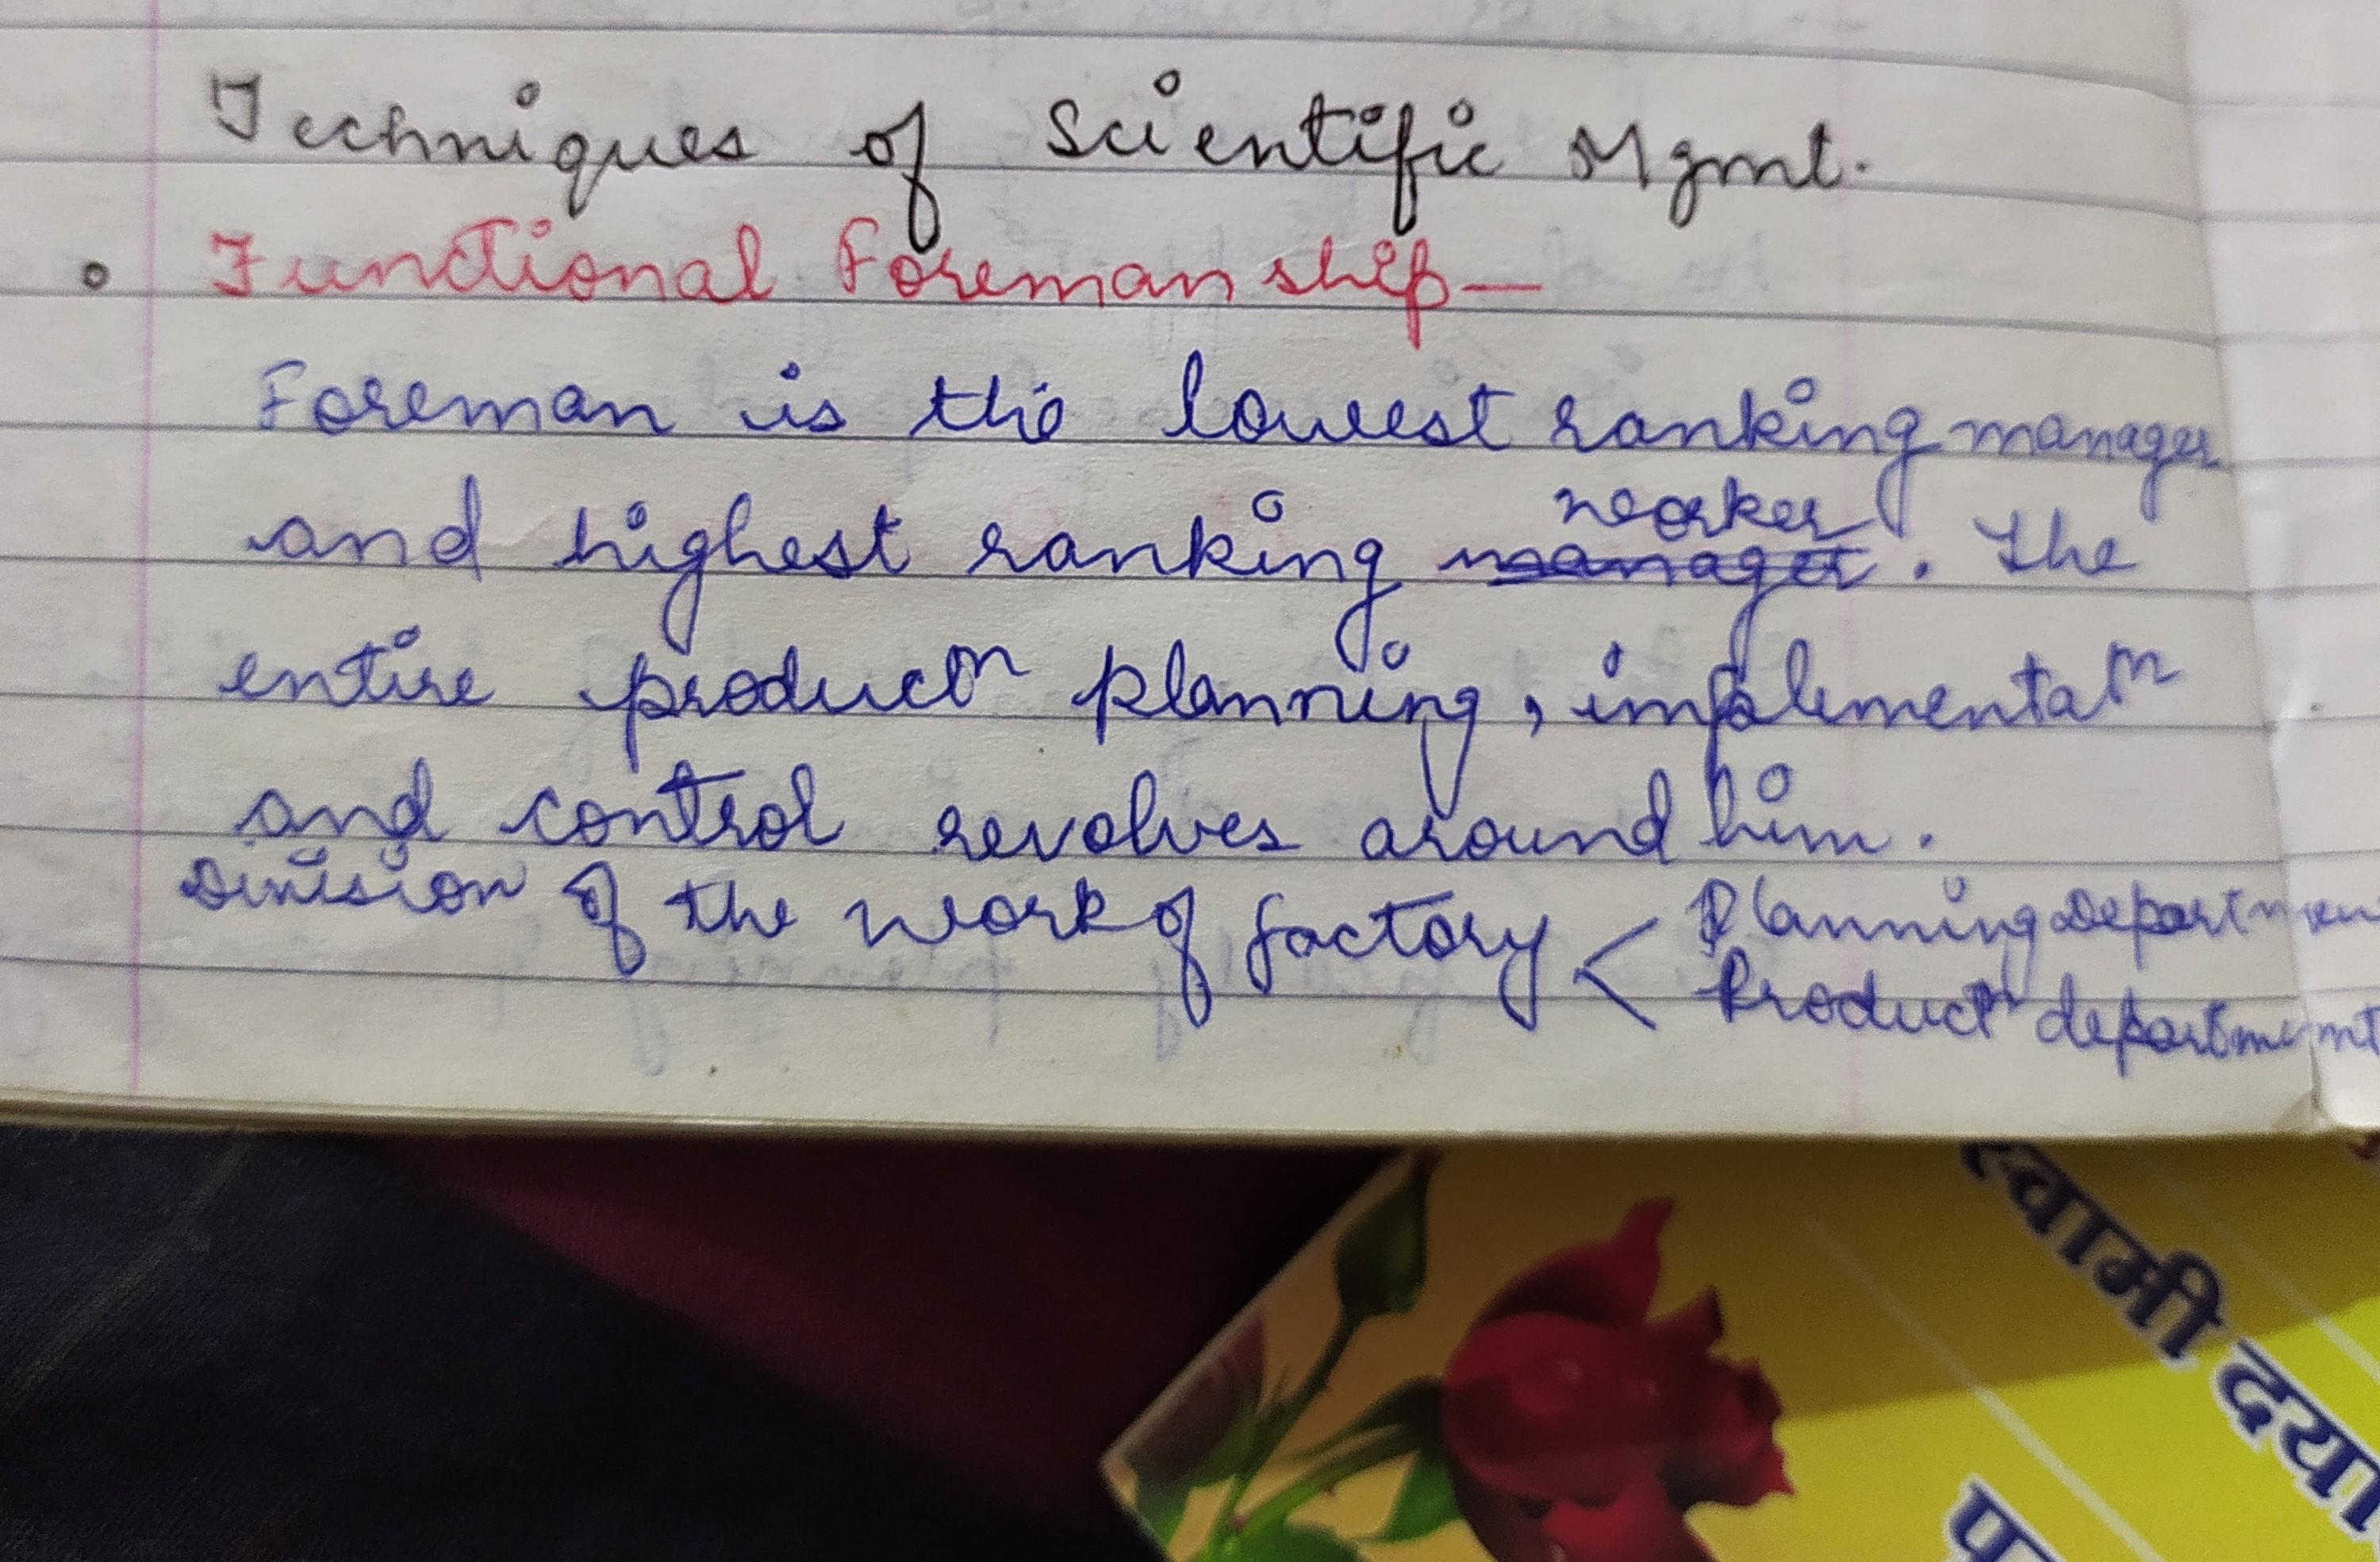 Techniques of Scientific Mgmt.
• Functional Foremanship —
Foreman is the lowest ranking manager
and highest ranking ~~manager~~ worker. The
entire productn planning, implementatn
and control revolves around him.
Division of the work of factory < Planning Department
Productn department
स्वामी दया